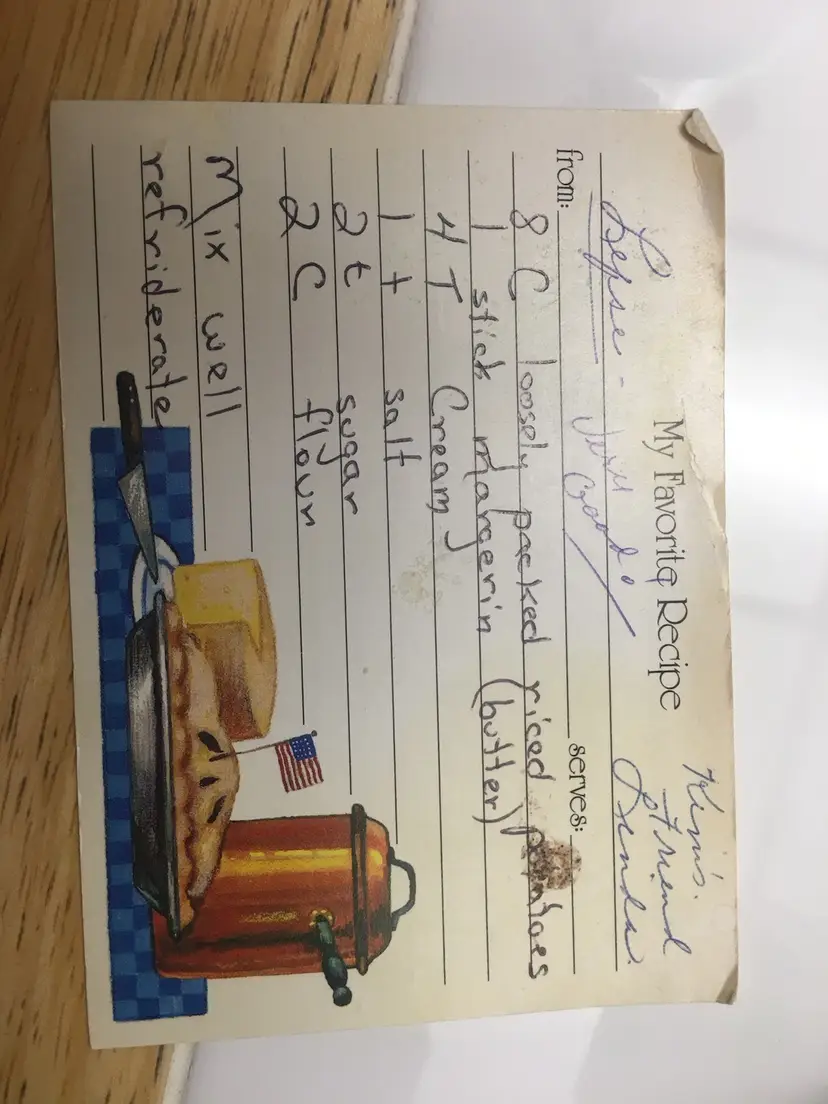 My Favorite Recipe
Kim's.
friend
Lepse - Very Good! Linda.
from: serves:
8 C loosely packed riced potatoes
1 stick margerin (butter)
4 T Cream
1 t salt
2 t sugar
2 C flour
Mix well
refriderate